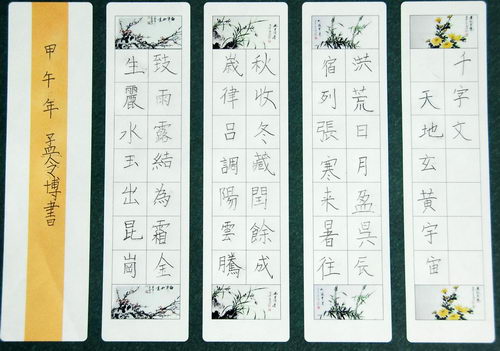 千字文
天地玄黃宇宙
洪荒日月盈昃辰
宿列張寒来暑往
秋收冬藏閏餘成
歲律呂調陽雲騰
致雨露結為霜金
生麗水玉出昆崗
甲午年孟令博書